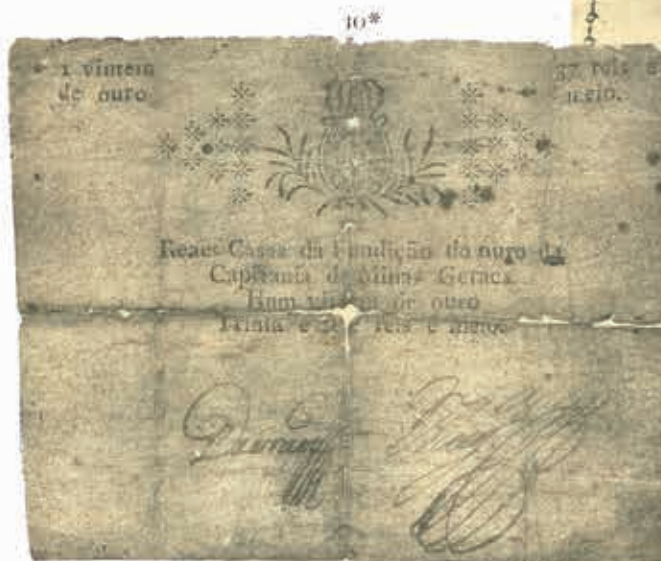 10*
1 vintem
de ouro
37 reis e
meio.
Reaes Casas da Fundição do ouro da
Capitania de Minas Geraes
Hum vintem de ouro
Trinta e sete reis e meio